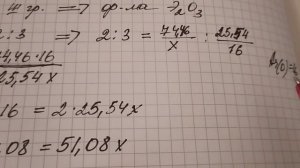 III гр. => ф-ла Э₂O₃
2:3 => 2:3 = 74,46/x : 25,54/16
4,46·16
25,54x
16 = 2·25,54x
,08 = 51,08x
Ar(O)=